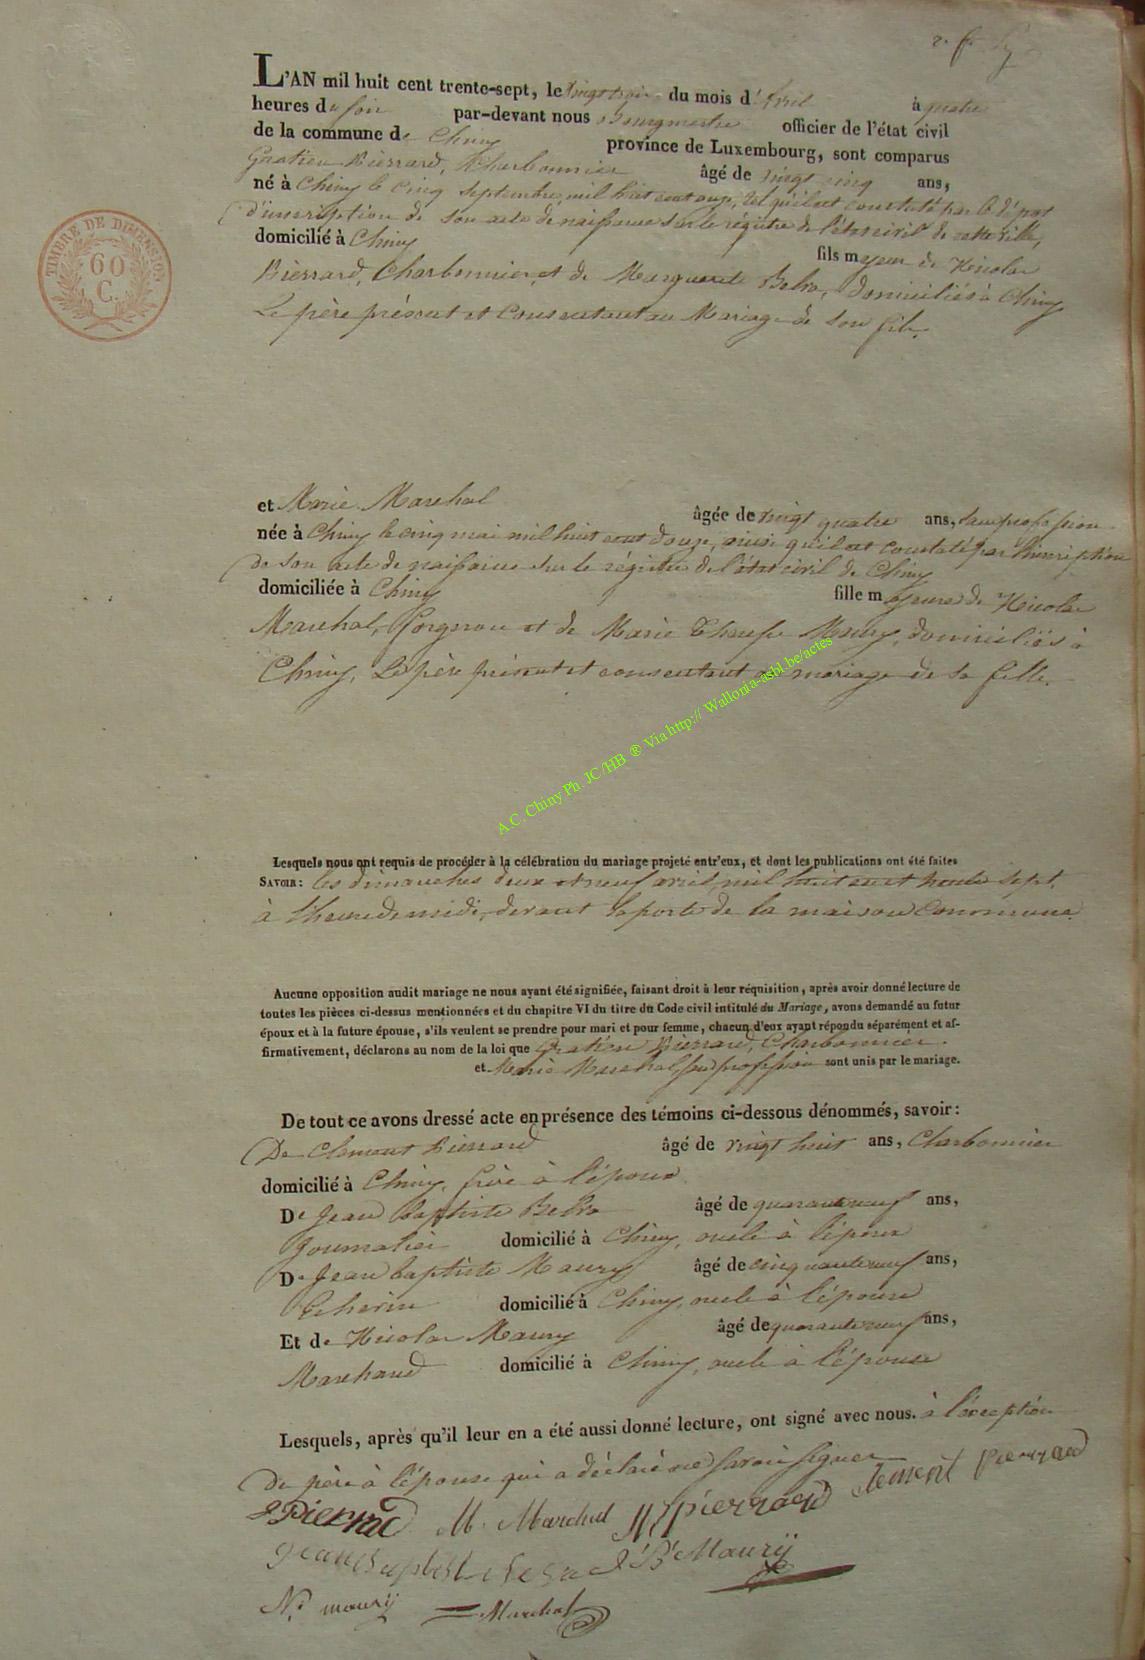 L'AN mil huit cent trente-sept, le vingt trois du mois d'Avril à quatre
heures du soir par-devant nous Bourgmestre officier de l'état civil
de la commune de Chiny province de Luxembourg, sont comparus
Gratien Pierrard, Charbonnier âgé de vingt cinq ans,
né à Chiny le cinq septembre mil huit cent onze, tel qu'il est constaté par le dépôt
d'inscription de son acte de naissance sur le régistre de l'état civil de cette ville,
domicilié à Chiny fils majeur de Nicolas
Pierrard, Charbonnier, et de Marguerite domiciliés à Chiny
Le père présent et consentant au Mariage de son fils.
TIMBRE DE DIMENSION
60
C.
et Marie Marchal âgée de vingt quatre ans, sans profession
née à Chiny le cinq mai mil huit cent douze, ainsi qu'il est constaté par l'inscription
de son acte de naissance sur le régistre de l'état civil de Chiny
domiciliée à Chiny fille majeure de Nicolas
Marchal, et de Marie Therese Maury, domiciliés à
Chiny, Le père présent et consentant au mariage de sa fille.
A.C. Chiny Ph. JC/HB ® Via http:// Wallonia-asbl.be/actes
Lesquels nous ont requis de procéder à la célébration du mariage projeté entr'eux, et dont les publications ont été faites
SAVOIR: les dimanches deux et neuf avril mil huit cent trente sept,
à l'heure de midi, devant la porte de la maison Commune.
Aucune opposition audit mariage ne nous ayant été signifiée, faisant droit à leur réquisition, après avoir donné lecture de
toutes les pièces ci-dessus mentionnées et du chapitre VI du titre du Code civil intitulé du Mariage, avons demandé au futur
époux et à la future épouse, s'ils veulent se prendre pour mari et pour femme, chacun d'eux ayant répondu séparément et af-
firmativement, déclarons au nom de la loi que Gratien Pierrard, Charbonnier.
et Marie Marchal, sans profession sont unis par le mariage.
De tout ce avons dressé acte en présence des témoins ci-dessous dénommés, savoir:
De Clement Pierrard âgé de vingt huit ans, Charbonnier
domicilié à Chiny, frère à l'époux
De Jean Baptiste âgé de quarante neuf ans,
Journalier domicilié à Chiny, oncle à l'époux
De Jean baptiste Maury âgé de cinquante neuf ans,
Echevin domicilié à Chiny, oncle à l'épouse
Et de Nicolas Maury âgé de quarante neuf ans,
Marchand domicilié à Chiny, oncle à l'épouse
Lesquels, après qu'il leur en a été aussi donné lecture, ont signé avec nous. à l'exception
du père à l'épouse qui a déclaré ne savoir signer
Pierrard M. Marchal Pierrard Clement Pierrard
Jean Baptist J B Maury
N. maury Marchal